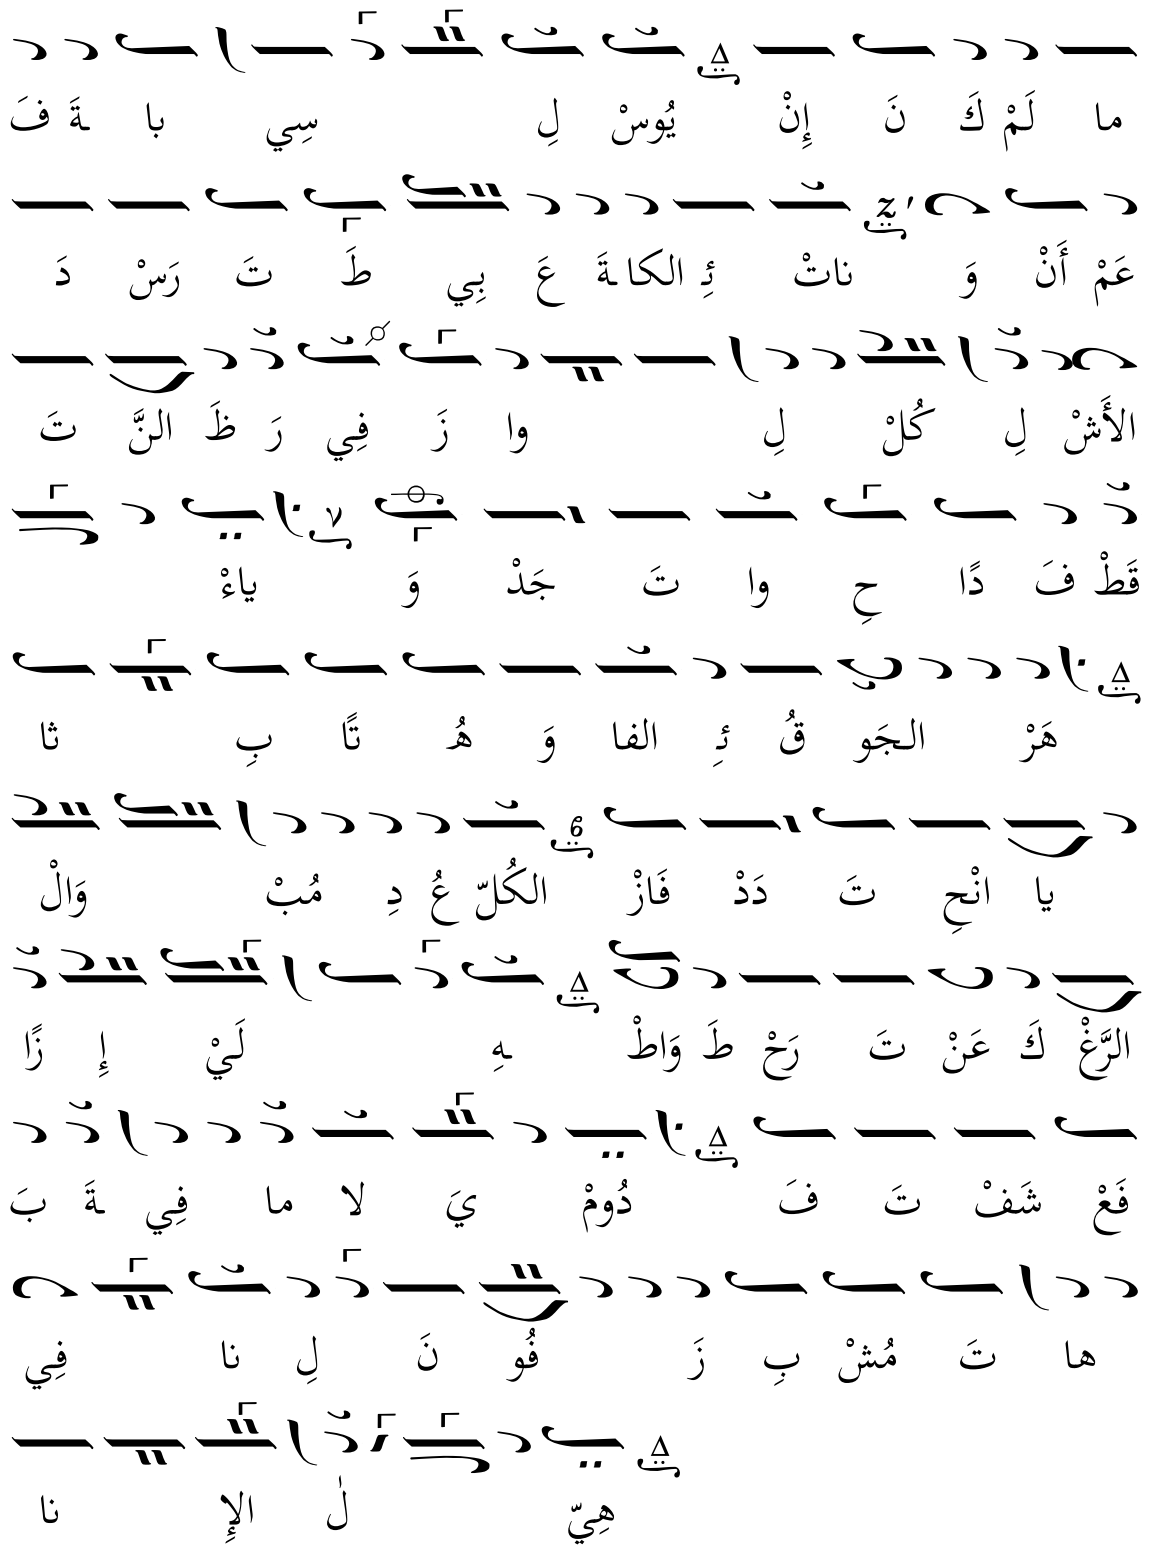 ما لَمْ كَ نَ إِنْ يُوسْ لِ سِي با ـةَ فَ
عَمْ أَنْ وَ ناتْ ئِ الكا ـةَ عَ بِي طَ تَ رَسْ دَ
الأَشْ لِ كُلْ لِ وا زَ فِي رَ ظَ النَّ تَ
قَطْ فَ دًا حِ وا تَ جَدْ وَ ياءْ
هَرْ الجَو قُ ئِ الفا وَ هُ تًا بِ ثا
يا انْحِ تَ دَدْ فَازْ الكُلّ عُ دِ مُبْ وَالْ
الرَّغْ كَ عَنْ تَ رَحْ طَ وَاطْ ـهِ لَيْ إِ زًا
فَعْ شَفْ تَ فَ دُومْ يَ لا ما فِي ـةَ بَ
ها تَ مُشْ بِ زَ فُو نَ لِ نا فِي
هِيّ لٰ الإِ نا